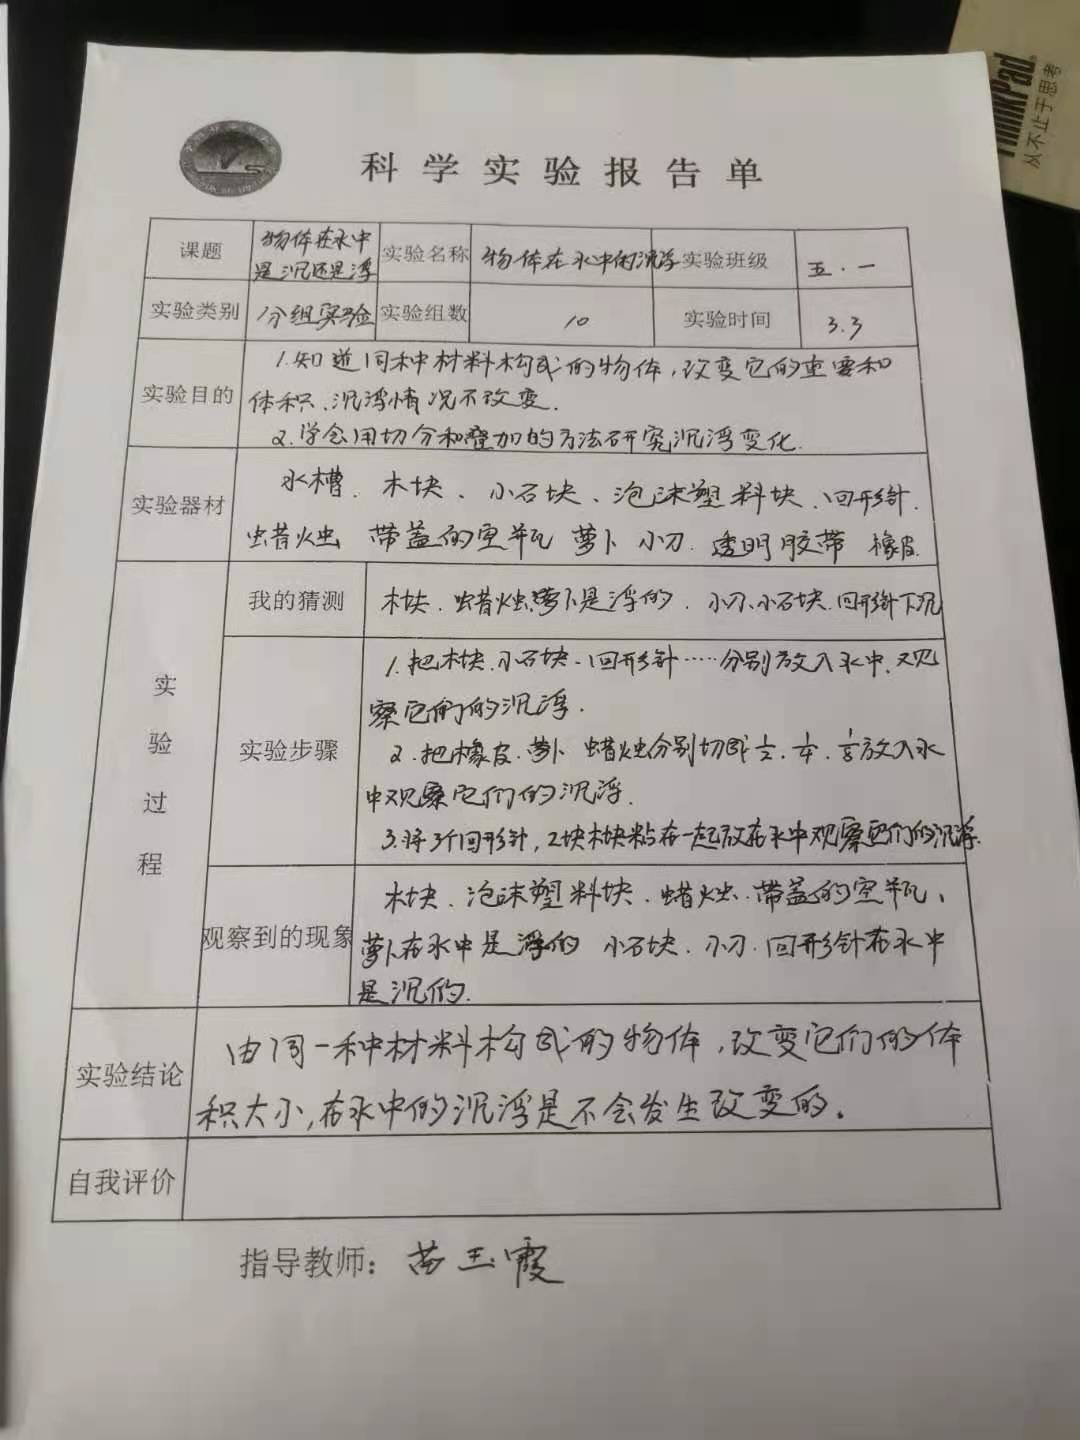 ThinkPad
从不止于思考
科学实验报告单
课题 物体在水中是沉还是浮 实验名称 物体在水中的沉浮 实验班级 五.一
实验类别 分组实验 实验组数 10 实验时间 3.3
实验目的 1.知道同种材料构成的物体,改变它的重要和
体积、沉浮情况不改变.
2.学会用切分和叠加的方法研究沉浮变化.
实验器材 水槽、木块、小石块、泡沫塑料块、回形针.
蜡烛 带盖的空瓶 萝卜 小刀.透明胶带 橡皮.
实验过程
我的猜测 木块.蜡烛萝卜是浮的.小刀、小石块.回形针下沉
实验步骤 1.把木块.小石块、回形针……分别放入水中.观
察它们的沉浮.
2.把橡皮.萝卜 蜡烛分别切成放入水
中观察它们的沉浮.
3.将3个回形针,2块木块粘在一起放在水中观察它们的沉浮.
观察到的现象 木块、泡沫塑料块、蜡烛.带盖的空瓶、
萝卜在水中是浮的 小石块、小刀.回形针在水中
是沉的.
实验结论 由同一种材料构成的物体,改变它们的体
积大小,在水中的沉浮是不会发生改变的。
自我评价
指导教师：苗玉霞